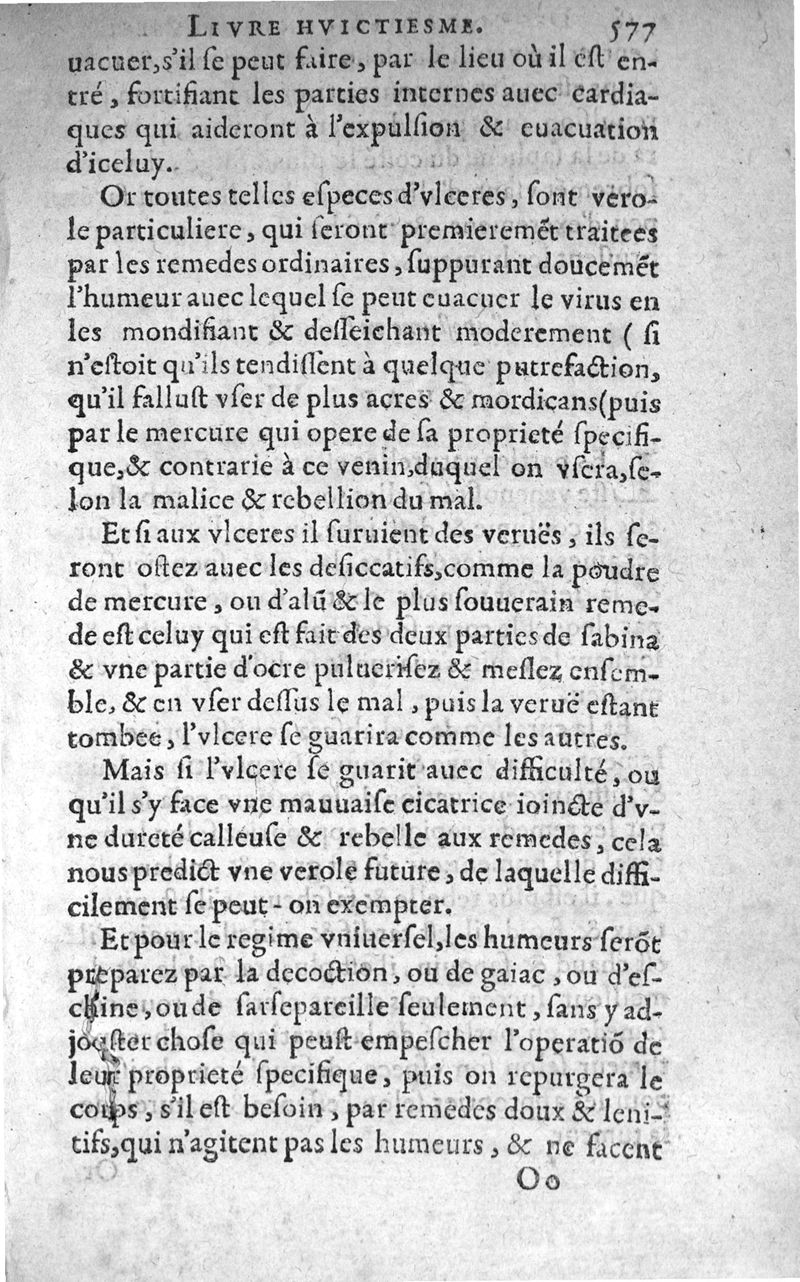 LIVRE HVICTIESME. 577
uacuer,s'il ſe peut faire, par le lieu où il eſt en-
tré, fortifiant les parties internes auec cardia-
ques qui aideront à l'expulſion & euacuation
d'iceluy.
Or toutes telles eſpeces d'vlceres, ſont vero-
le particuliere, qui ſeront premieremẽt traitees
par les remedes ordinaires, ſuppurant doucemẽt
l'humeur auec lequel ſe peut euacuer le virus en
les mondifiant & deſſeichant moderement ( ſi
n'eſtoit qu'ils tendiſſent à quelque putrefaction,
qu'il falluſt vſer de plus acres & mordicans(puis
par le mercure qui opere de ſa proprieté ſpecifi-
que,& contrarie à ce venin,duquel on vſera,ſe-
lon la malice & rebellion du mal.
Et ſi aux vlceres il ſuruient des veruës, ils ſe-
ront oſtez auec les deſiccatifs,comme la poudre
de mercure, ou d'alũ & le plus ſouuerain reme-
de eſt celuy qui eſt fait des deux parties de ſabina
& vne partie d'ocre pulueriſez & meſlez enſem-
ble, & en vſer deſſus le mal, puis la veruë eſtant
tombee, l'vlcere ſe guarira comme les autres.
Mais ſi l'vlcere ſe guarit auec difficulté, ou
qu'il s'y face vne mauuaiſe cicatrice ioincte d'v-
ne dureté calleuſe & rebelle aux remedes, cela
nous predict vne verole future, de laquelle diffi-
cilement ſe peut-on exempter.
Et pour le regime vniuerſel,les humeurs ſerõt
preparez par la decoction, ou de gaiac, ou d'eſ-
chine, ou de ſarſepareille ſeulement, ſans y ad-
jouſter choſe qui peuſt empeſcher l'operatiõ de
leur proprieté ſpecifique, puis on repurgera le
corps, s'il eſt beſoin, par remedes doux & leni-
tifs,qui n'agitent pas les humeurs, & ne facent
Oo